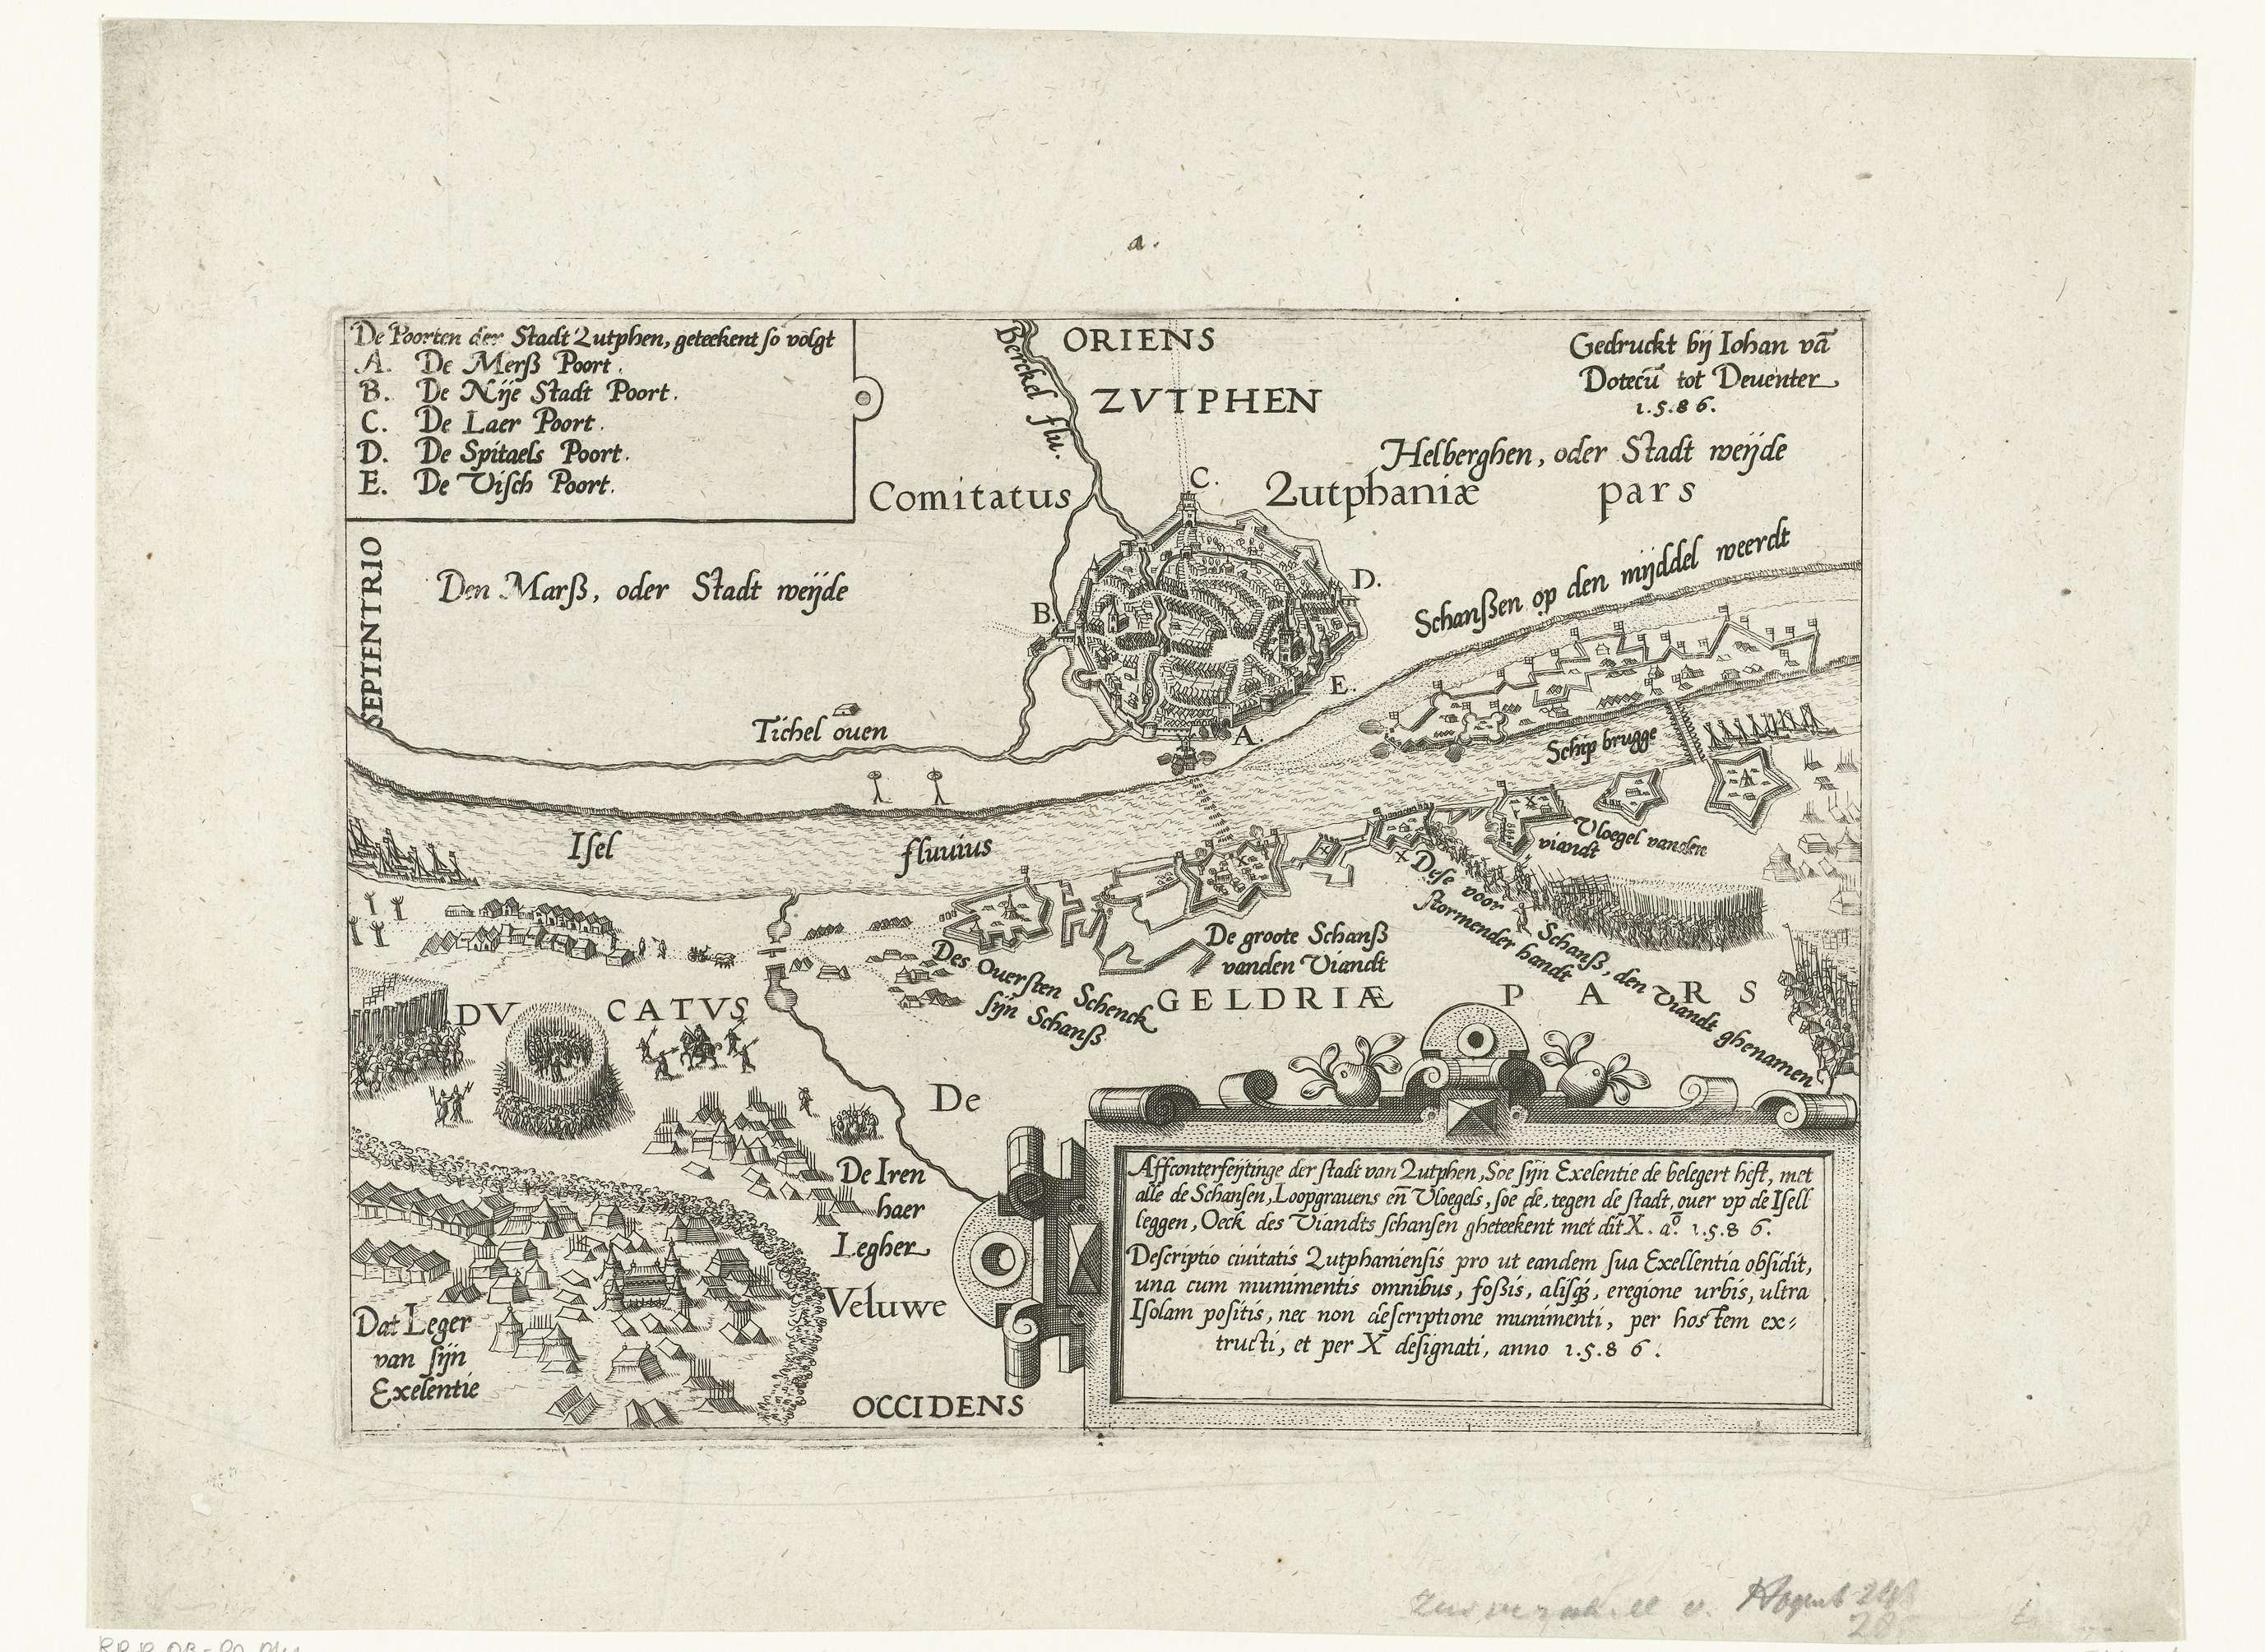 a.
De Poorten der Stadt Zutphen, geteekent ſo volgt
A. De Merß Poort.
B. De Nije Stadt Poort.
C. De Laer Poort.
D. De Spitaels Poort.
E. De Viſch Poort.
Berckel flu.
ORIENS
ZVTPHEN
Gedruckt bij Iohan vā
Dotecū tot Deuenter
1.5.86.
Helberghen, oder Stadt weijde
Comitatus Zutphaniæ pars
C.
SEPTENTRIO
Den Marß, oder Stadt weijde
B.
D.
E.
A.
Schanßen op den mijddel weerdt
Tichel ouen
Schip brugge
Iſel fluuius
Vloegel vanden
viandt
Deſe voor Schanß, den Viandt ghenamen
ſtormender handt
De groote Schanß
vanden Viandt
Des Ouerſten Schenck
ſijn Schanß
DVCATVS GELDRIÆ PARS
De
Veluwe
De Iren
haer
Legher
Dat Leger
van ſijn
Exelentie
OCCIDENS
Affconterfeijtinge der ſtadt van Zutphen, Soe ſijn Exelentie de belegert heft, met
alle de Schanſen, Loopgrauens eñ Vloegels, ſoe de, tegen de ſtadt, ouer op de Iſell
leggen, Oeck des Viandts ſchanſen gheteekent met dit X. aº. 1.5.8 6.
Deſcriptio ciuitatis Zutphanienſis pro ut eandem ſua Exellentia obſidit,
una cum munimentis omnibus, foßis, aliſqꝫ, eregione urbis, ultra
Iſolam poſitis, nec non deſcriptione munimenti, per hostem ex⸗
tructi, et per X deſignati, anno 1.5.8 6.